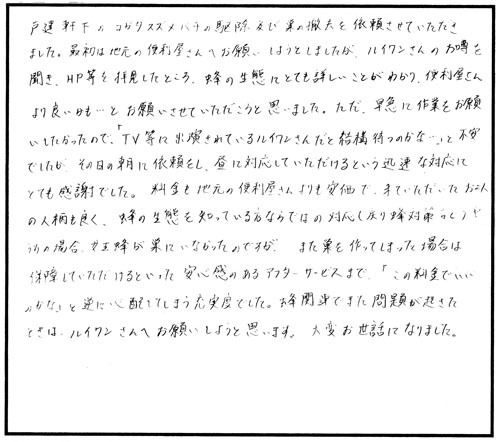 戸建軒下のコガタスズメバチの駆除及び巣の撤去を依頼させていただき
ました。最初は地元の便利屋さんへお願いしようとしましたが、ルイワンさんの噂を
聞き、HP等を拝見したところ、蜂の生態にとても詳しいことがわかり、便利屋さん
より良いかも…とお願いさせていただこうと思いました。ただ、早急に作業をお願
いしたかったので、「TV等に出演されているルイワンさんだと結構待つのかな…」と不安
でしたが、その日の朝に依頼をし、昼に対応していただけるという迅速な対応に
とても感謝でした。料金も地元の便利屋さんよりも安価で、来ていただいたお二人
の人柄も良く、蜂の生態を知っている方ならではの対応(戻り蜂対策etc)
うちの場合、女王蜂が巣にいなかったのですが、また巣を作ってしまった場合は
保障していただけるといった安心感のあるアフターサービスまで、「この料金でいい
のかな」と逆に心配してしまう充実度でした。お庭関連でまた問題が起きた
ときは、ルイワンさんへお願いしようと思います。大変お世話になりました。